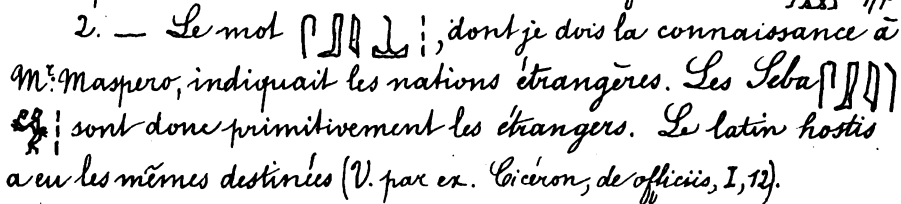 2. — Le mot 𓋴𓃀𓄿 ⁝, dont je dois la connaissance à
Mr. Maspero, indiquait les nations étrangères. Les Seba
⁝ sont donc primitivement les étrangers. Le latin hostis
a eu les mêmes destinées (V. par ex. Cicéron, de officiis, I, 12).